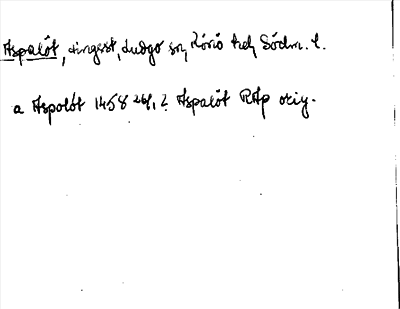 Aspalöt, dingest, Ludgo sn, Rönö hd, Södm. l.
a Aspolöt 1458 26/1 ? Aspalöt RAp orig.